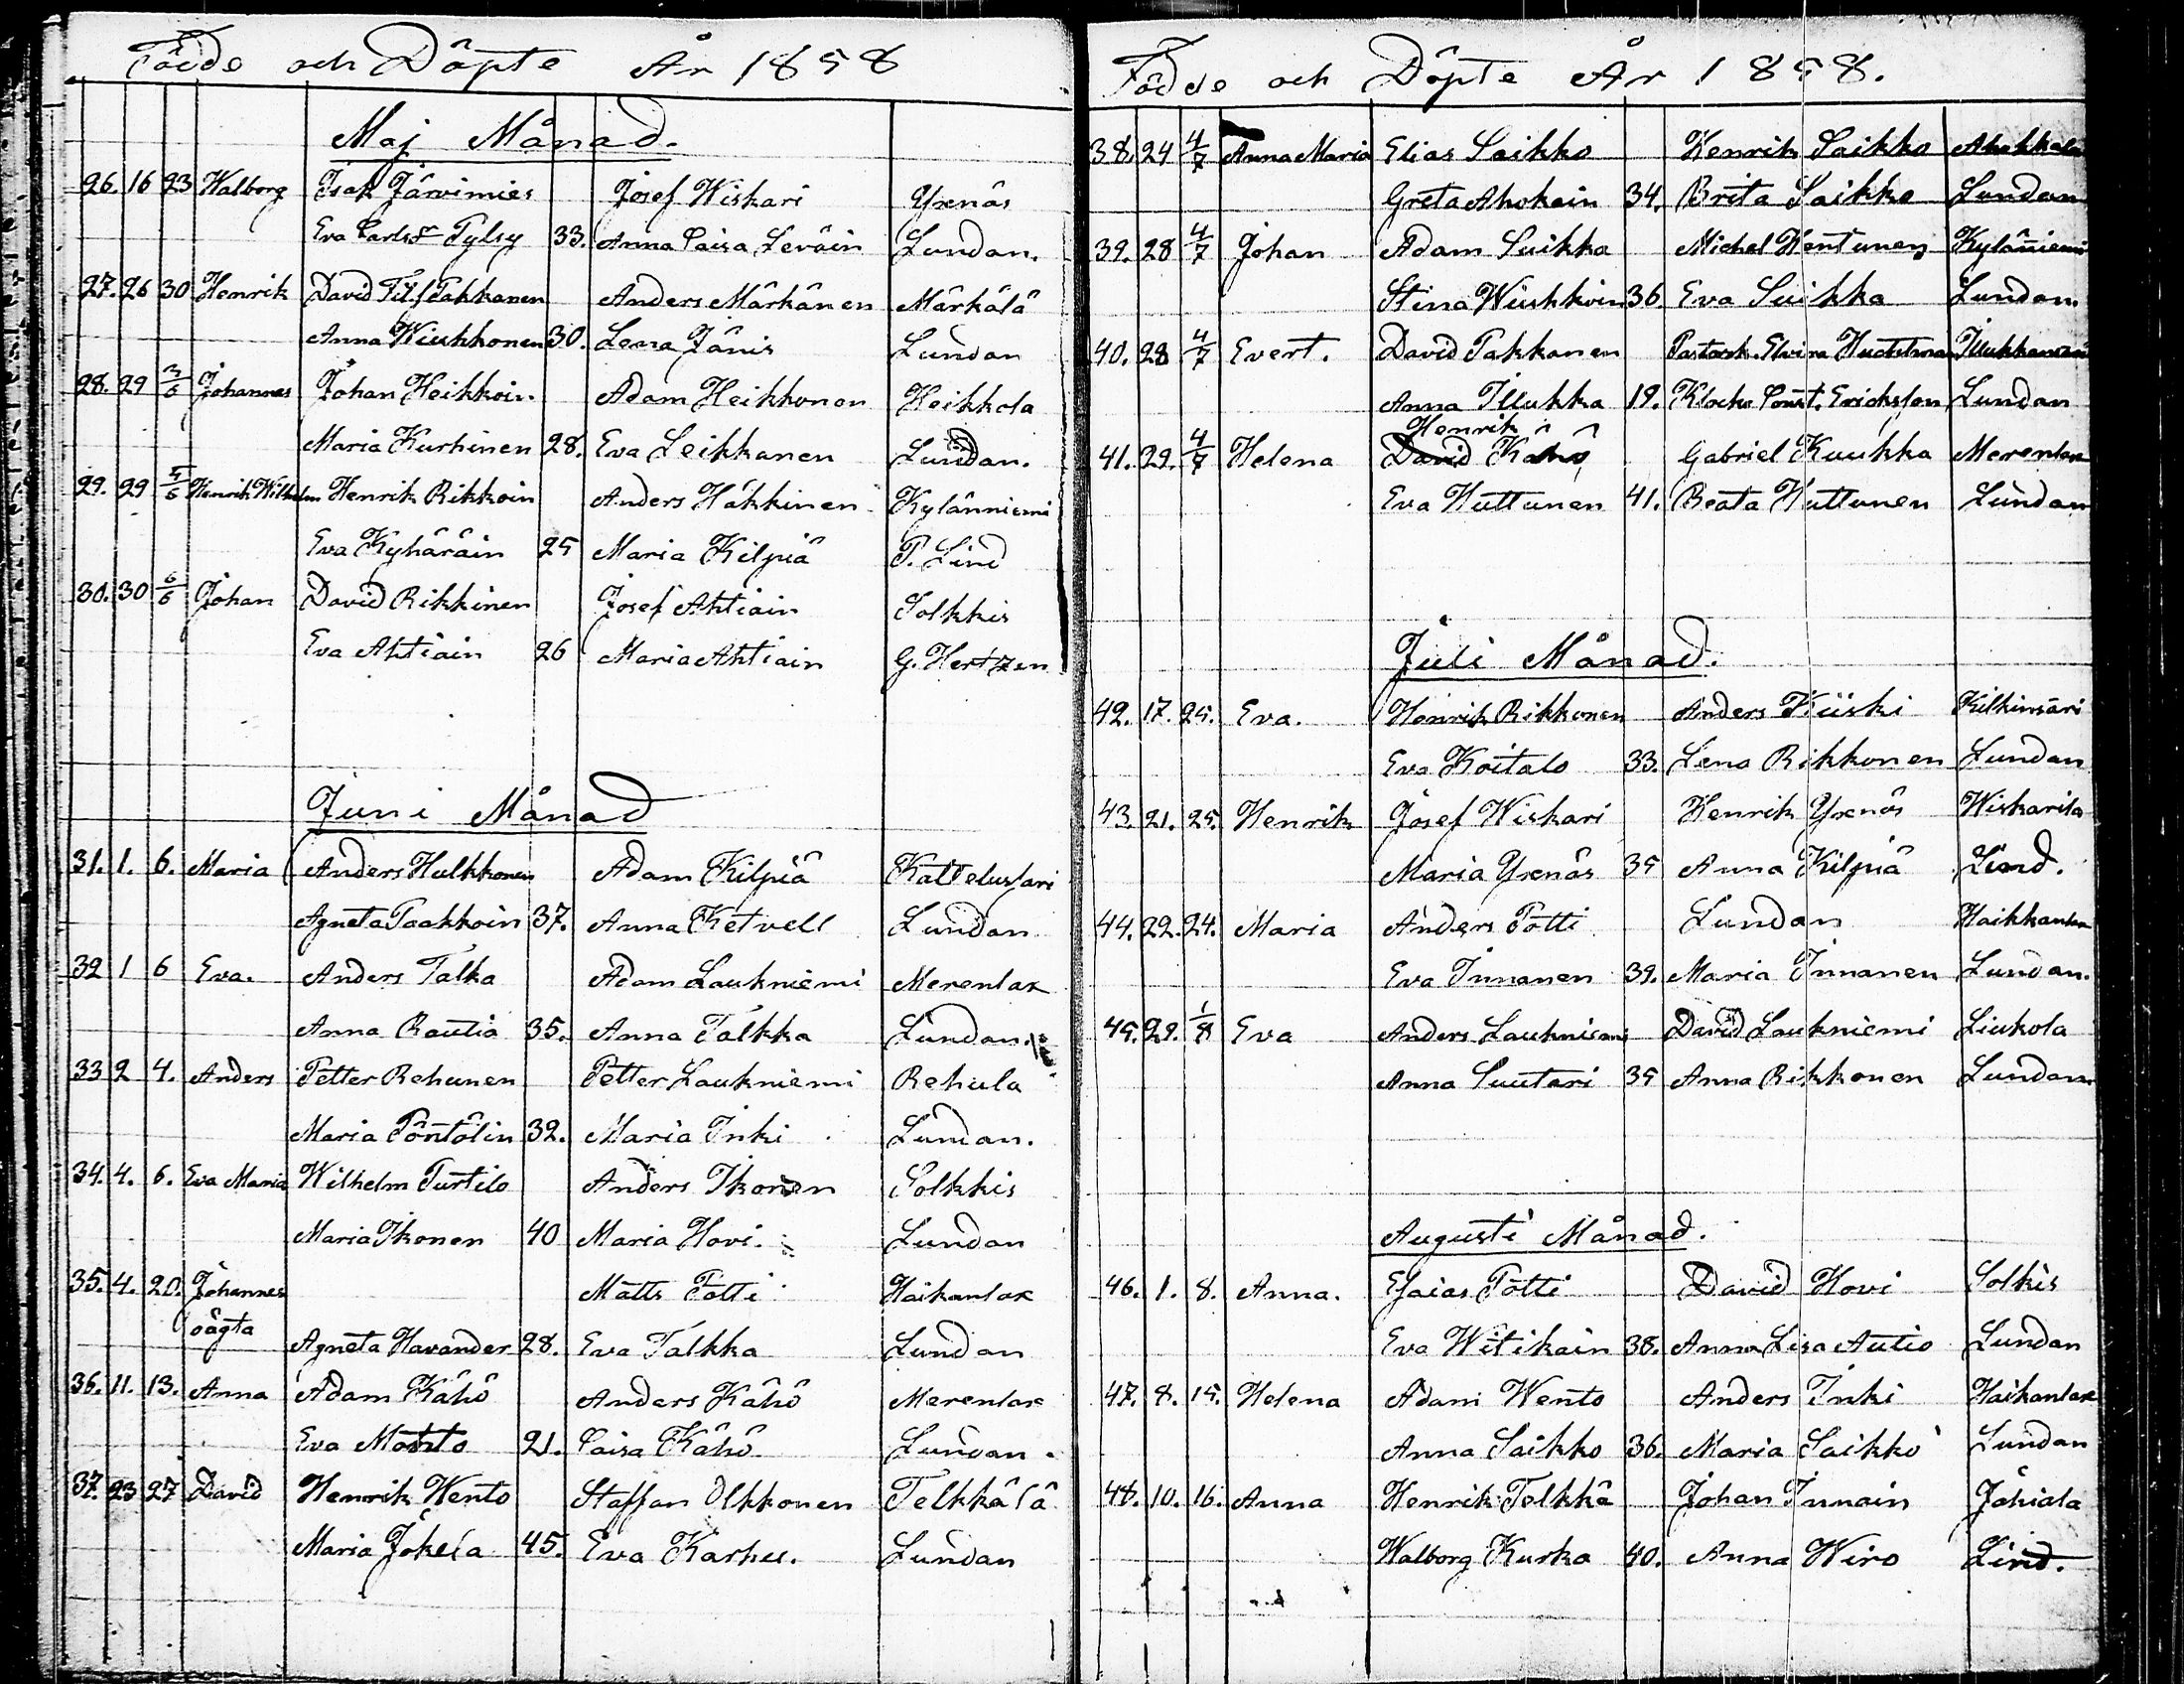 Födde och Döpte År 1858
Maj Månad.
26. 16 23 Walborg Isak Järvimies Josef Wiskari Yxenäs
Eva Carlsdr Pylsy 33. Anna Caisa Leväin Lundan.
27. 26 30 Henrik David Pakkanen Anders Märkänen Märkälä
Anna Wiukkonen 30. Lena Jänis Lundan
28. 29 3/6 Johannes Johan Heikkoin Adam Heikkonen Heikkola
Maria Kurhinen 28. Eva Leikkanen Lundan.
29. 29 5/6 Henrik Wilhelm Henrik Rikkoin Anders Häkkinen Kylänniemi
Eva Kyhäräin 25 Maria Kilpiä P. Lind
30. 30 6/6 Johan David Rikkinen Josef Ahtiain Solkkis
Eva Ahtiain 26 Maria Ahtiain G. Hertzen
Juni Månad
31. 1. 6. Maria Anders Hulkkonen Adam Kilpiä Kattelussari
Agneta Paakkoin 37. Anna Ketvell Lundan
32 1 6 Eva. Anders Talka Adam Laukniemi Merenlax
Anna Rautia 35. Anna Talkka Lundan.
33 2 4. Anders Petter Rehunen Petter Laukniemi Rehula
Maria Pöntölin 32. Maria Inki Lundan.
34. 4. 6. Eva Maria Wilhelm Turtilo Anders Ikonen Solkkis
Maria Ikonen 40 Maria Hovi. Lundan
35. 4. 20. Johannes Matts Potti Haikanlax
oägta Agneta Havander 28. Eva Talkka Lundan
36. 11. 13. Anna Adam Kähö Anders Kähö Merenlax
Eva 21. Caisa Kähö Lundan.
37. 23 27 David Henrik Wento Staffan Olkkonen Telkkälä
Maria Jokela 45. Eva Karhu. Lundan
Födde och Döpte År 1858.
38. 24 4/7 Anna Maria Elias Saikko Henrik Saikko Ahokkala
Greta Ahokain 34. Brita Saikko Lundan
39. 28 4/7 Johan Adam Suikka Michel Kylänniemi
Stina Wiukkoin 36. Eva Suikka Lundan
40. 28 4/7 Evert. David Pakkanen Elvira Illukkansaari
Anna Illukka 19. Klocko Const. Erickson Lundan
Henrik
41. 29. 4/7 Helena David Kähö Gabriel Kuukka Merenlax
Eva Huttunen 41. Beata Huttunen Lundan
Juli Månad.
42. 17. 25. Eva. Henrik Rikkonen Anders Kiiski Kilkinsari
Eva Koitalo 33. Lena Rikkonen Lundan
43. 21. 25. Henrik Josef Wiskari Henrik Yxenös Wiskarila
Maria Yxenäs 35 Anna Kilpiä Lind.
44. 22. 24. Maria Anders Potti Lundan Haikkanlax
Eva Innanen 39. Maria Innanen Lundan.
45. 29. 1/8 Eva Anders Laukniemi David Laukniemi Liukola
Anna Suutari 35 Anna Rikkonen Lundan
Augusti Månad.
46. 1. 8. Anna. Esaias Potti David Hovi Solkis
Eva Witikain 38. Anna Lisa Autio Lundan
47. 8. 15. Helena Adam Wento Anders Inki Haikanlax
Anna Saikko 36. Maria Saikko Lundan
48. 10. 16. Anna Henrik Telkkä Johan Innain Johiala
Walborg Kurka 40. Anna Wiro Lind.